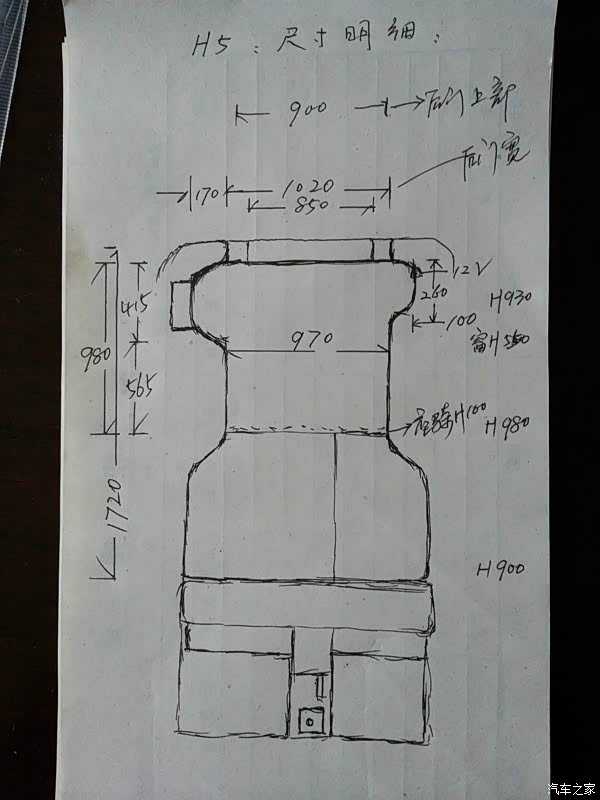 H5:尺寸明细:
900 后门上部
后门宽
170 1020
850
12V
415 260 H930
100
窗H550
980 970
565
H100 H980
1720
H900
汽车之家